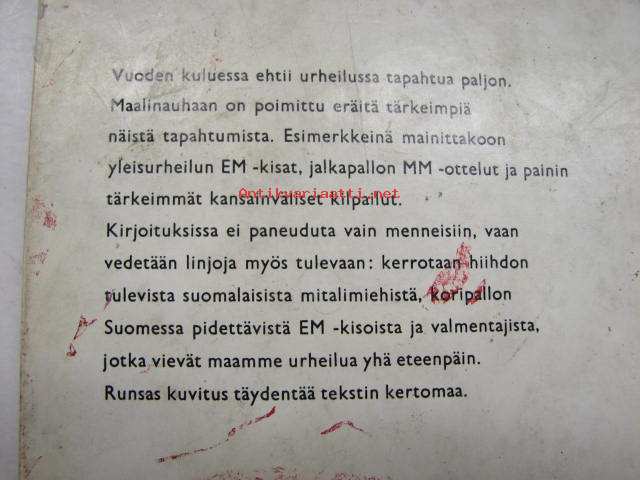 Vuoden kuluessa ehtii urheilussa tapahtua paljon.
Maalinauhaan on poimittu eräitä tärkeimpiä
näistä tapahtumista. Esimerkkeinä mainittakoon
yleisurheilun EM -kisat, jalkapallon MM -ottelut ja painin
Antikvariaatti.net
tärkeimmät kansainväliset kilpailut.
Kirjoituksissa ei paneuduta vain menneisiin, vaan
vedetään linjoja myös tulevaan: kerrotaan hiihdon
tulevista suomalaisista mitalimiehistä, koripallon
Suomessa pidettävistä EM -kisoista ja valmentajista,
jotka vievät maamme urheilua yhä eteenpäin.
Runsas kuvitus täydentää tekstin kertomaa.